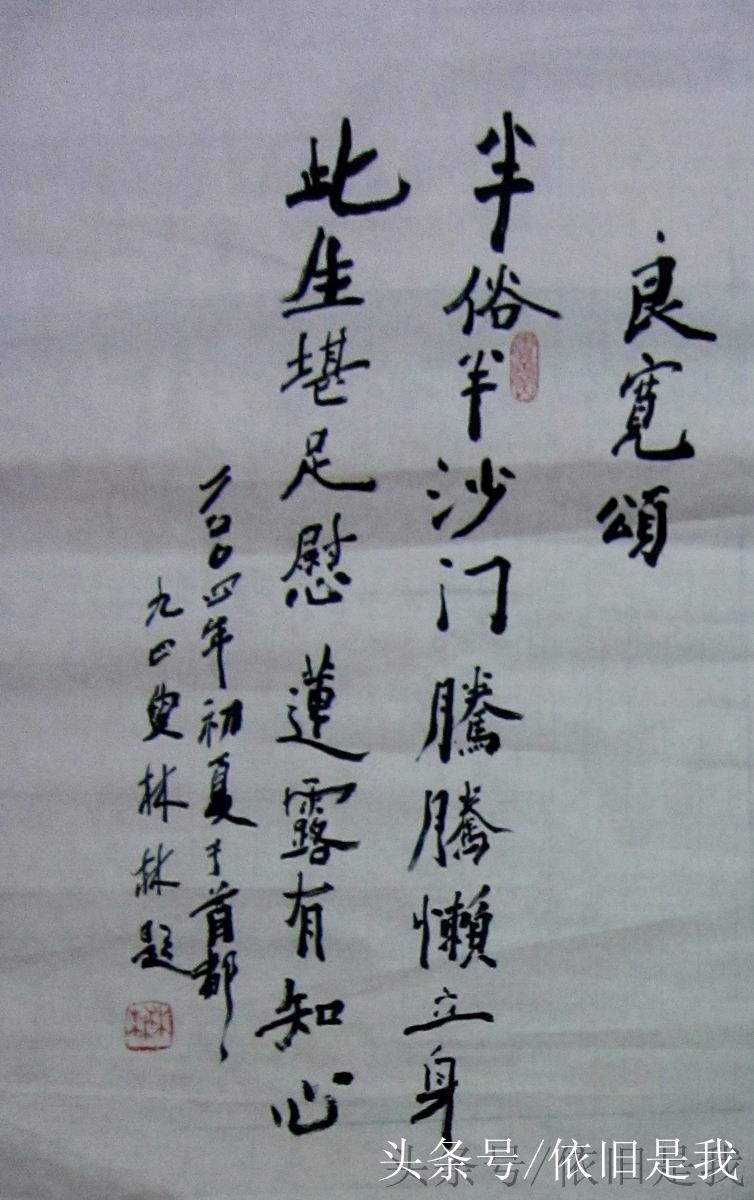 良寬頌
半俗半沙门騰騰懶立身
此生堪足慰蓮露有知心
二〇〇四年初夏于首都
九四叟林林題
林林
头条号/依旧是我